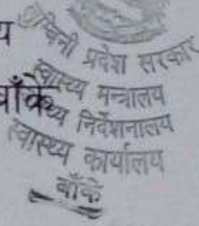 य
लुम्बिनी प्रदेश सरकार
स्वास्थ्य मन्त्रालय
बाँके
स्वास्थ्य निर्देशनालय
स्वास्थ्य कार्यालय
बाँके